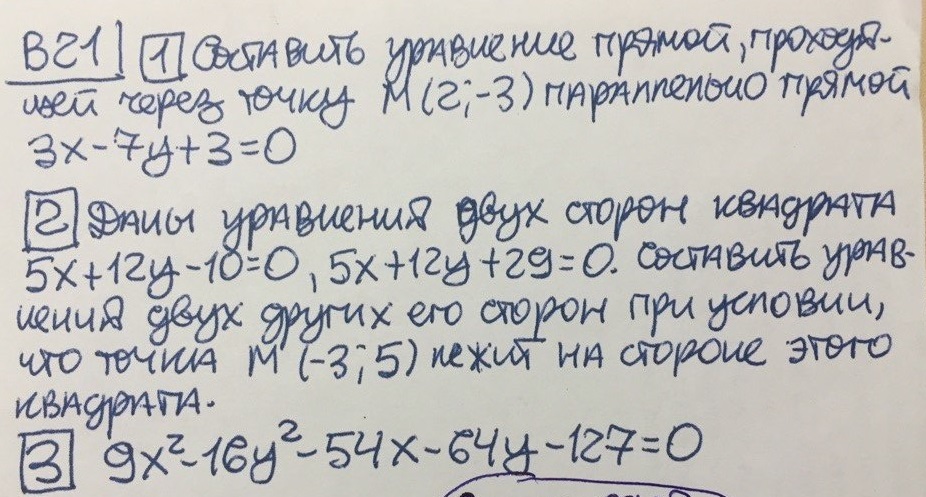 В21 1 Составить уравнение прямой, проходя-
щей через точку M(2;-3) параллельно прямой
3x-7y+3=0
2 Даны уравнения двух сторон квадрата
5x+12y-10=0, 5x+12y+29=0. Составить урав-
нения двух других его сторон при условии,
что точка M(-3;5) лежит на стороне этого
квадрата.
3 9x²-16y²-54x-64y-127=0